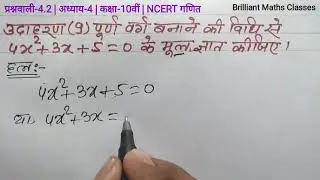 प्रश्नवाली-4.2 | अध्याय-4 | कक्षा-10वीं | NCERT गणित
Brilliant Maths Classes
उदाहरण (9) पूर्ण वर्ग बनाने की विधि से
4x²+3x+5=0 के मूल ज्ञात कीजिए।
हल:-
4x²+3x+5=0
या, 4x²+3x=